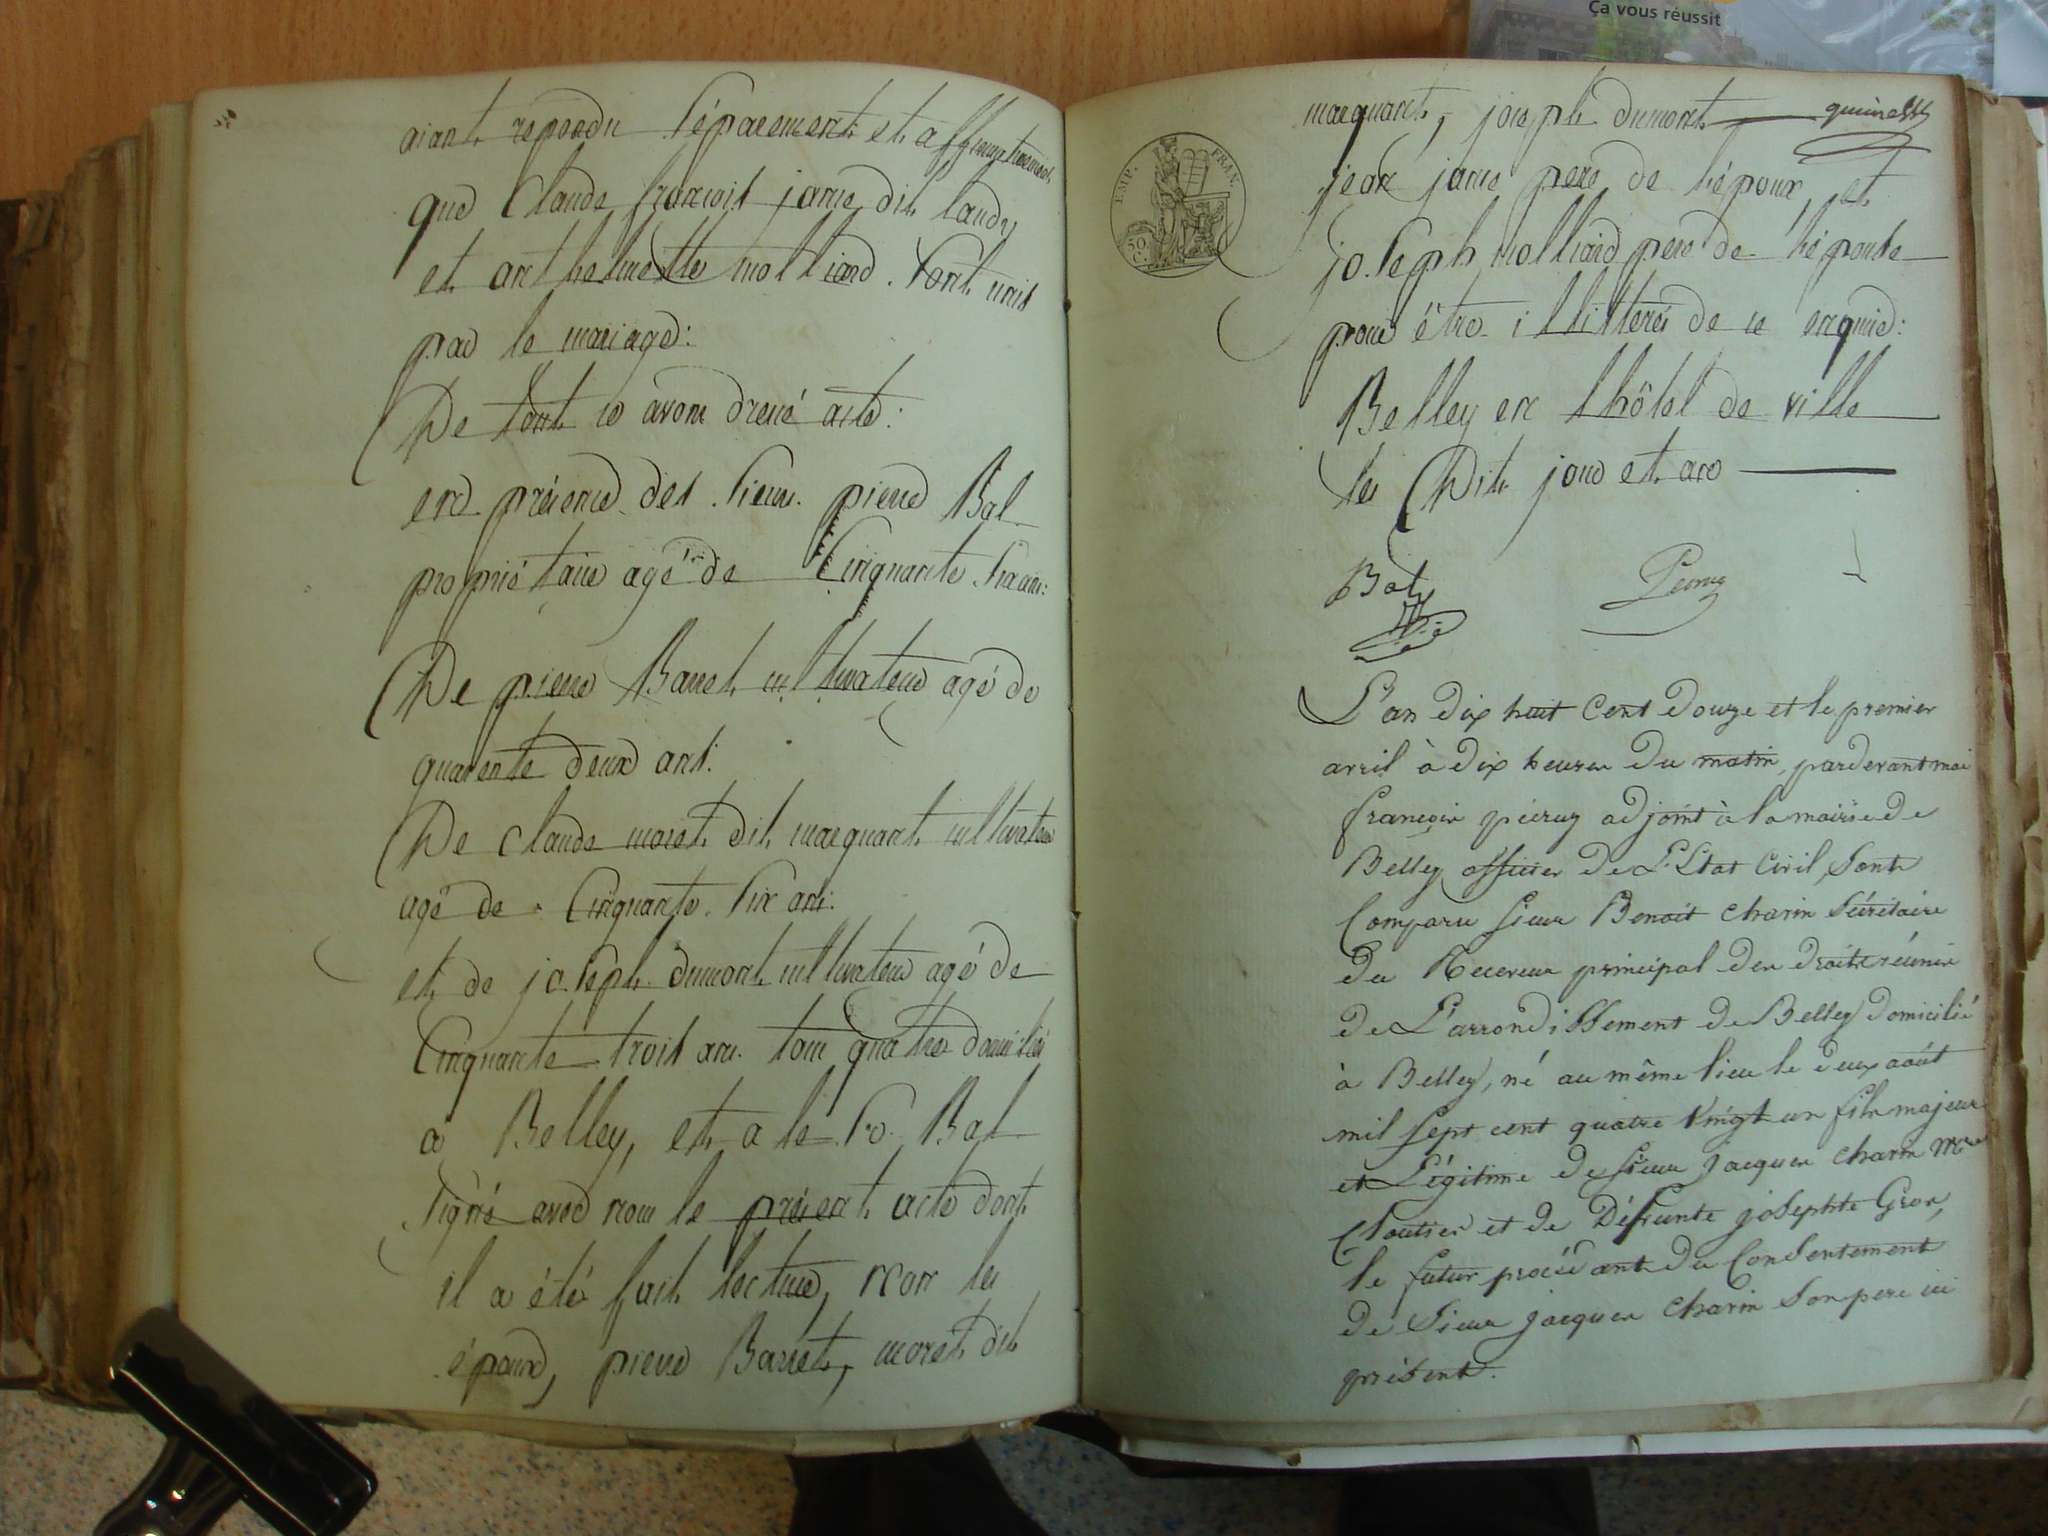 aiant repondu séparement et affirmativement
que Claude françois jame dit landy
et anthelmette molliard. sont unis
par le mariage:
De tout ce avons dressé acte:
en présence des sieurs. pierre Bal
propriétaire agé de Cinquante six ans:
De pierre Barret cultivateur agé de
quarente deux ans:
De Claude moret dit marquant cultivateur
agé de Cinquante. six ans:
et de joseph dumont cultivateur agé de
Cinquante trois ans. tous quatre domiciliés
a Belley, et a le sr. Bal
signé avec nous le présent acte dont
il a été fait lecture, non les
époux, pierre Barret, moret dit
Ça vous réussit
marquant, joseph dumont
jean jame pere de l'époux, et
joseph molliard pere de l'épouse
pour être illitterés de ce enquis:
Belley en l'hôtel de ville
les Dits jour et an
EMP. FRAN.
50. C.
Bal
Peeruy
L'an dix huit cent douze et le premier
avril à dix heures du matin, pardevant moi
françois péeruy adjoint à la mairie de
Belley officier de L'Etat Civil, sont
Comparu sieur Benoit charin sécrétaire
du Receveur principal des droits réunis
de L'arrondissement de Belley domicilié
à Belley, né au même lieu le deux août
mil sept cent quatre vingt un fils majeur
et Légitime de sieur jacques charin Mre
Cloutier et de Défunte josephte Gros,
le futur procédant du Consentement
de sieur jacques charin son pere ici
présent.